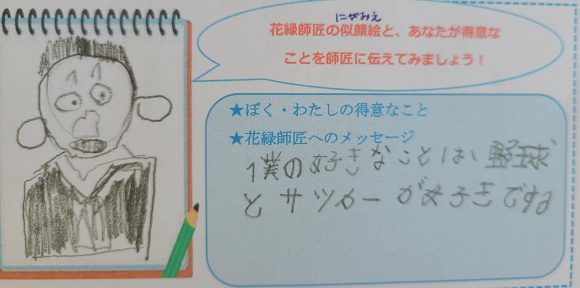 にがおえ
花緑師匠の似顔絵と、あなたが得意な
ことを師匠に伝えてみましょう!
★ぼく・わたしの得意なこと
★花緑師匠へのメッセージ
僕の好きなことは野球
とサッカーが好きですね